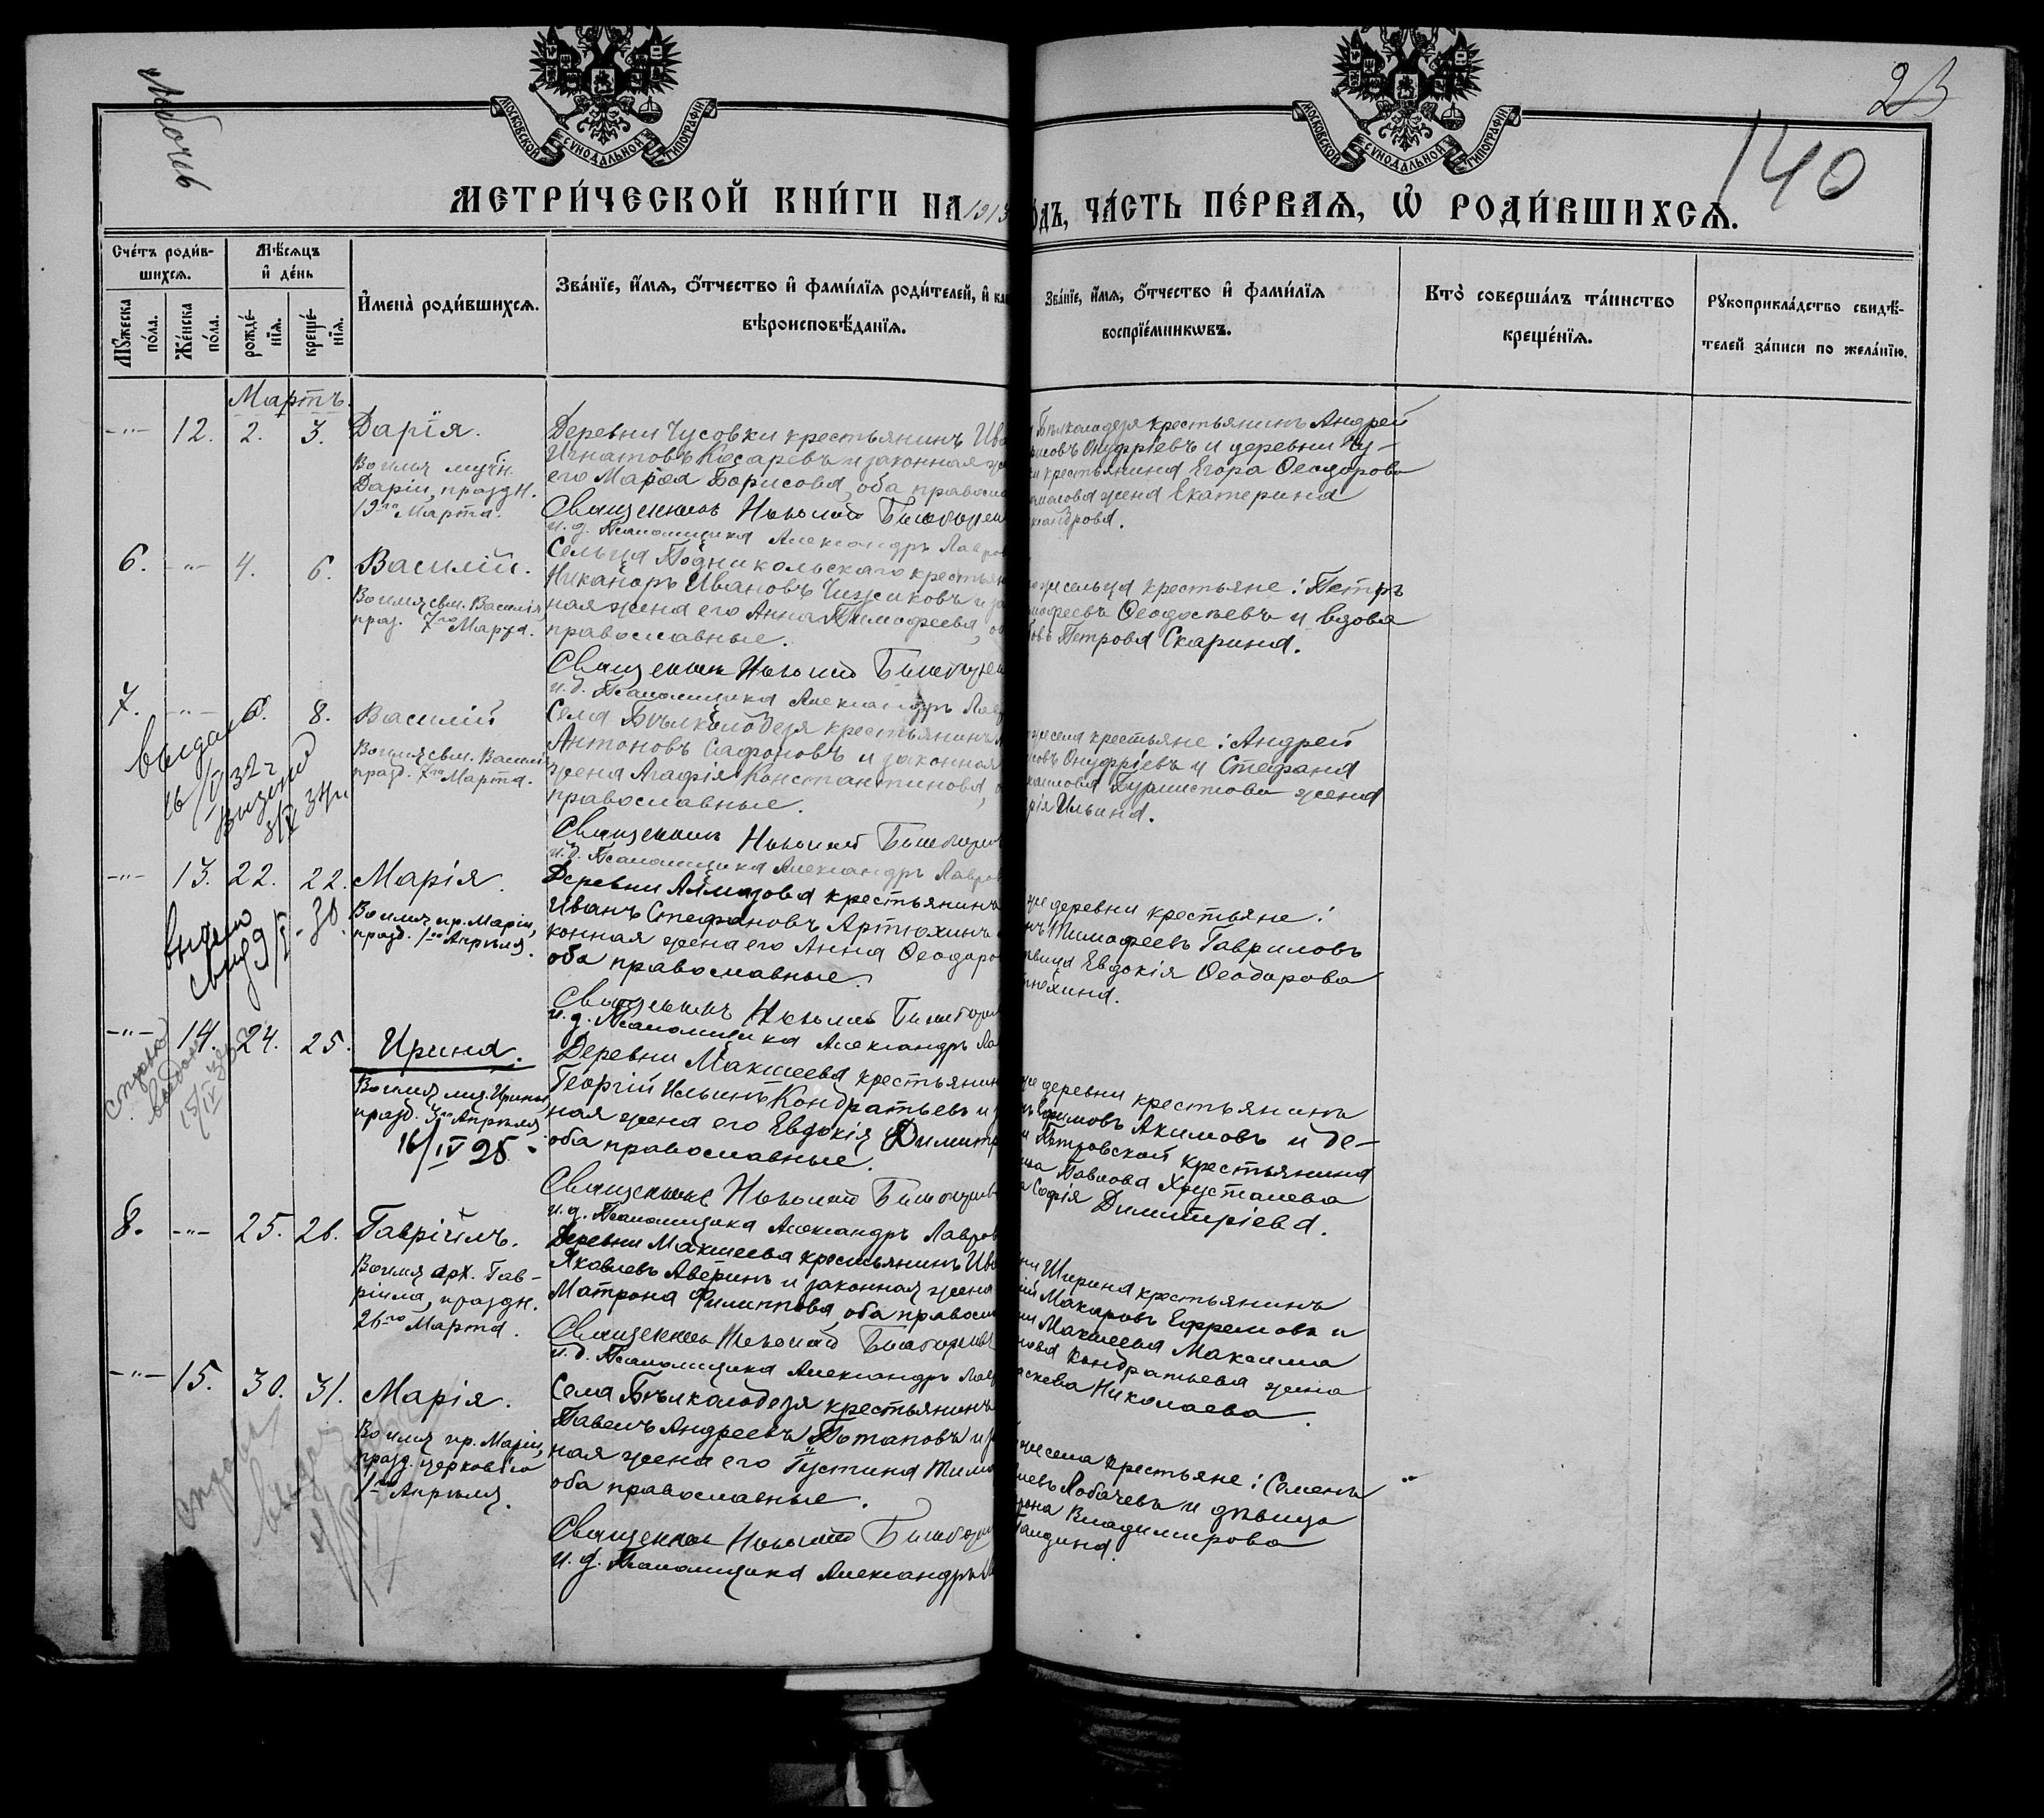 23
140
МОСКОВСКОЙ СѴНОДАЛЬНОЙ ТИПОГРАФІИ
МОСКОВСКОЙ СѴНОДАЛЬНОЙ ТИПОГРАФІИ
МЕТРИ́ЧЕСКОЙ КНИ́ГИ НА 1913
ОДЪ, ЧА́СТЬ ПЕ́РВАЯ, Ѿ РОДИ́ВШИХСЯ.
Сче́тъ роди́в-
шихся.
Мѣ́сяцъ
и҆ де́нь
Мꙋ́жеска по́ла.
Же́нска по́ла.
рожде́-
нїя.
креще́-
нїя.
И҆мена̀ роди́вшихся.
Зва́нїе, и҆́мя, ѻ҆́тчество и҆ фами́лїя роди́телей, и҆ как
вѣроисповѣ́данїя.
Зва́нїе, и҆́мя, ѻ҆́тчество и҆ фами́лїя
воспрїе́мникѡвъ.
Кто̀ соверша́лъ та́инство
креще́нїя.
Рꙋкоприкла́дство свидѣ́-
телей за́писи по жела́нїю.
Мартъ.
12. 2. 3. Дарія.
Во имя мучн.
Даріи, праздн.
19го Марта.
Деревни Чусовки крестьянинъ Ив
Игнатовъ Косаревъ и законная же
его Марѳа Борисова, оба правосл
Священникъ Николай
и. д. Псаломщика Александръ Лавров
Бѣлколодезя крестьянинъ Андрей
исовъ Онуфріевъ и деревни Чу-
ки крестьянина Егора Ѳеодорова
жена Екатерина
ксандрова.
6. 4. 6. Василій.
Во имя свм. Василія,
праз. 7го Марта.
Сельца Подникольскаго крестьян
Никаноръ Ивановъ Чижиковъ и за
ная жена его Анна Тимофеева, об
православные.
Священникъ Николай
и. д. Псаломщика Александръ Лав
же сельца крестьяне: Петръ
мофеевъ Ѳеодосьевъ и вдова
овь Петрова Скарина.
7. 6. 8. Василій
Во имя свм. Василія
празд. 7го Марта.
выдано
16/V 32 г
Села Бѣлколодезя крестьянинъ
Антоновъ Сафоновъ и законная
жена Агафія Константинова, о
православные.
Священникъ Николай
и. д. Псаломщика Александръ Лавров
же села крестьяне: Андрей
совъ Онуфріевъ и Стефана
Бурмистова жена
рія Ильина.
13. 22. 22. Марія.
Во имя пр. Маріи,
празд. 1го Апрѣля.
выдано
свид 9/V - 30.
Деревни Алмазова крестьянинъ
Иванъ Стефановъ Артюхинъ
конная жена его Анна Ѳеодоро
оба православные.
Священникъ Николай
и. д. Псаломщика Александръ Ла
же деревни крестьяне:
нъ Тимофеевъ Гавриловъ
вица Евдокія Ѳеодорова
14. 24. 25. Ирина.
Во имя муч. Ирины,
празд. 3го Апрѣля.
16/IV 25.
Деревни Макшеева крестьянин
Георгій Ильинъ Кондратьевъ и з
ная жена его Евдокія Димитр
оба православные.
Священникъ Николай
и. д. Псаломщика Александръ Лавров
же деревни крестьянинъ
Ефимовъ Акимовъ и де-
и Петровской крестьянина
Павлова Хрусталева
а Софія Димитріева.
8. 25. 26. Гавріилъ.
Во имя арх. Гав-
ріила, праздн.
26го Марта.
Деревни Макшеева крестьянинъ Ив
Яковлевъ Аверинъ и законная жена
Матрона Филиппова, оба правосл
Священникъ Николай
и. д. Псаломщика Александръ Лав
ни Ширина крестьянинъ
ій Макаровъ Ефремовъ и
ни Макшеева Максима
нова Кондратьева жена
аскева Николаева.
15. 30. 31. Марія.
Во имя пр. Маріи,
празд. церковію
1го Апрѣля.
Села Бѣлколодезя крестьянинъ
Павелъ Андреевъ Потаповъ и з
ная жена его Іустина Тимо
оба православные.
Священникъ Николай
и. д. Псаломщика Александръ
же села крестьяне: Семенъ
Лобачевъ и дѣвица
рона Владимирова